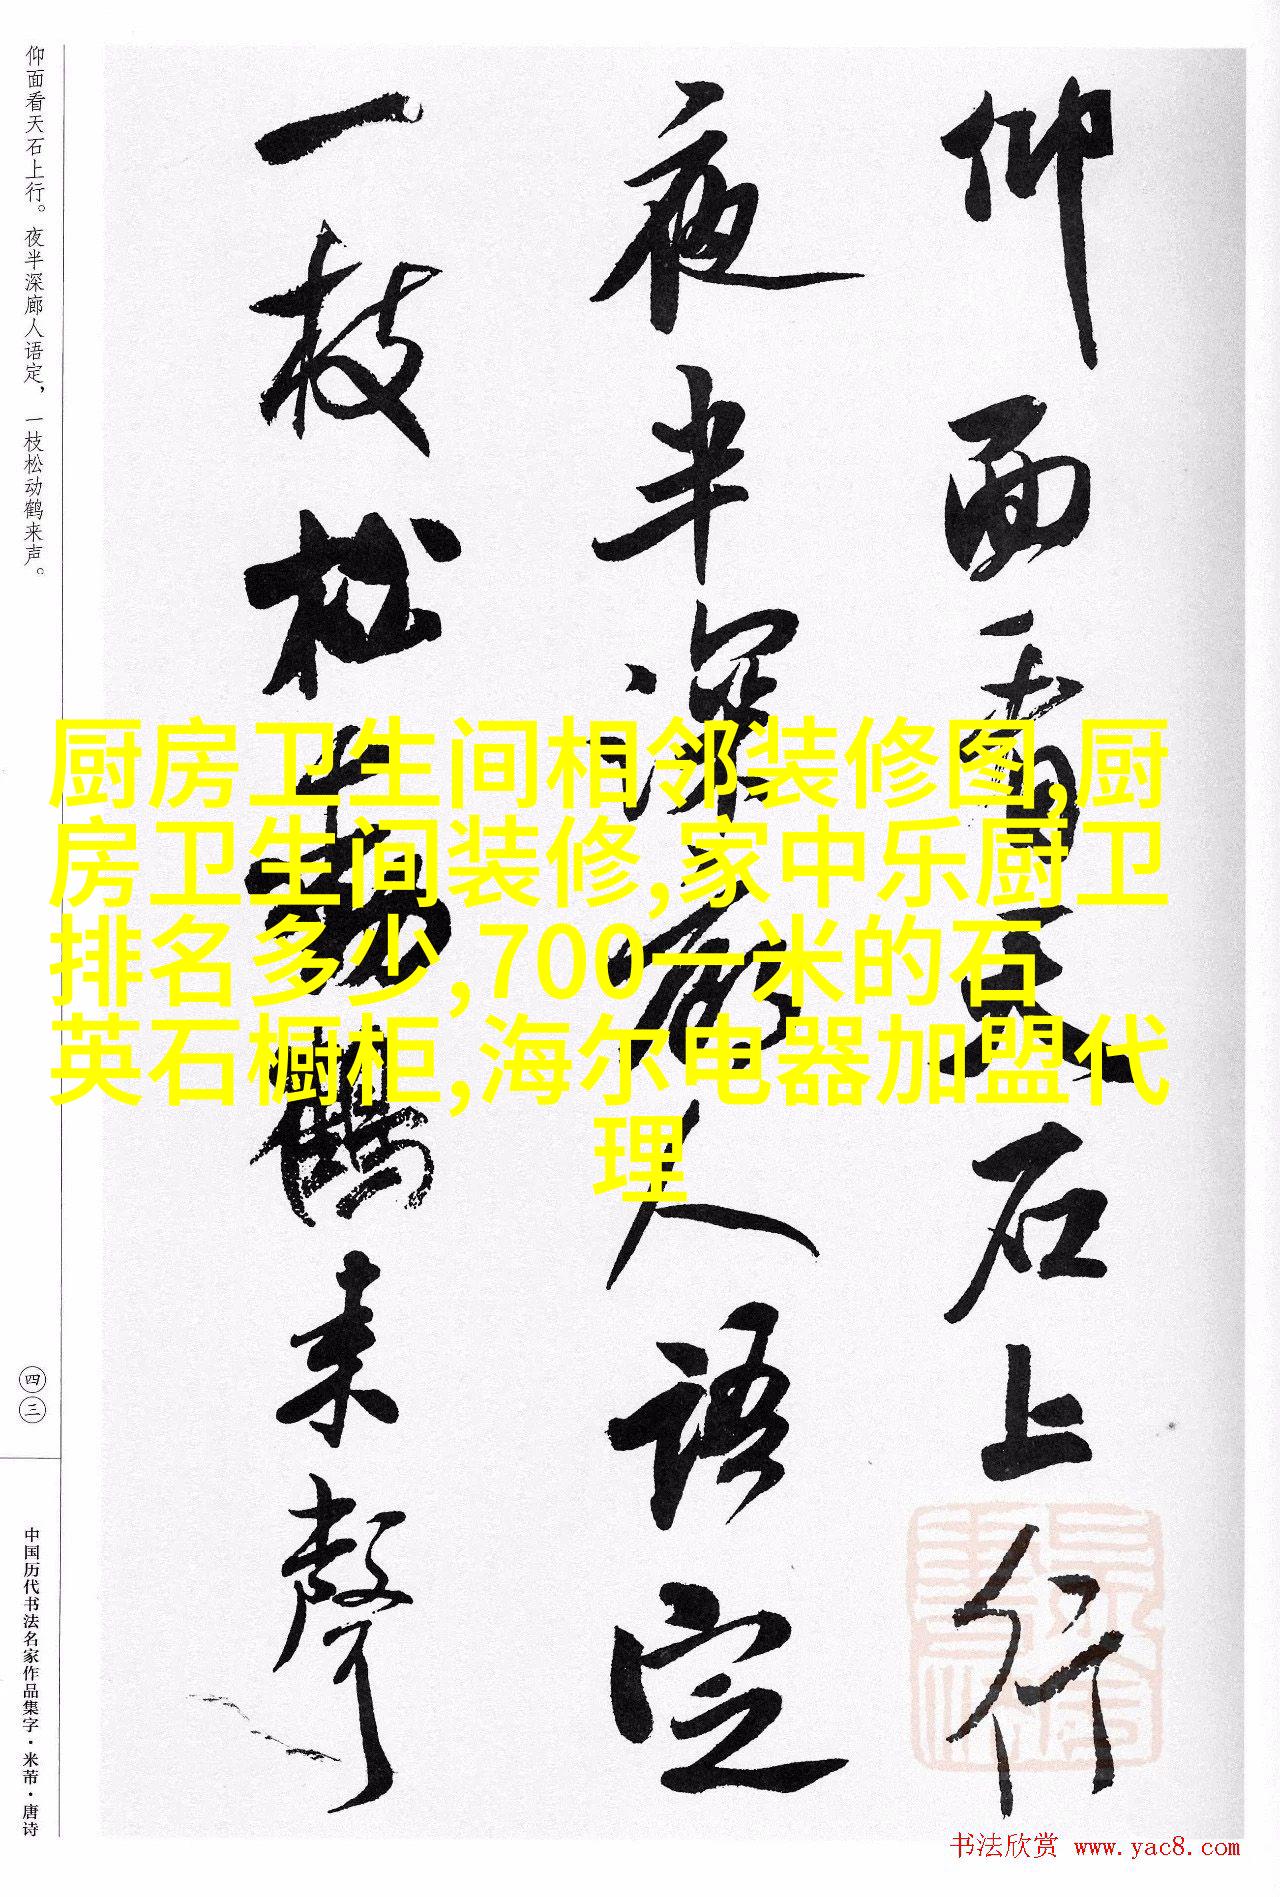 仰面看天石上行
夜半深廊人语定
一枝松动鹤来声
仰面看天石上行。夜半深廊人语定，一枝松动鹤来声。
四三
中国历代书法名家作品集字·米芾·唐诗
厨房卫生间相邻装修图,厨
房卫生间装修,家中乐厨卫
排名多少,700一米的石
英石橱柜,海尔电器加盟代
理
书法欣赏 www.yac8.com